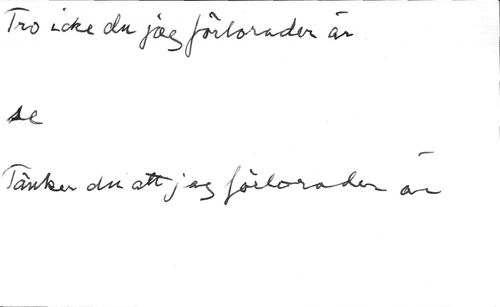 Tro icke du jag förlorader är
se
Tänker du att jag förlorader är